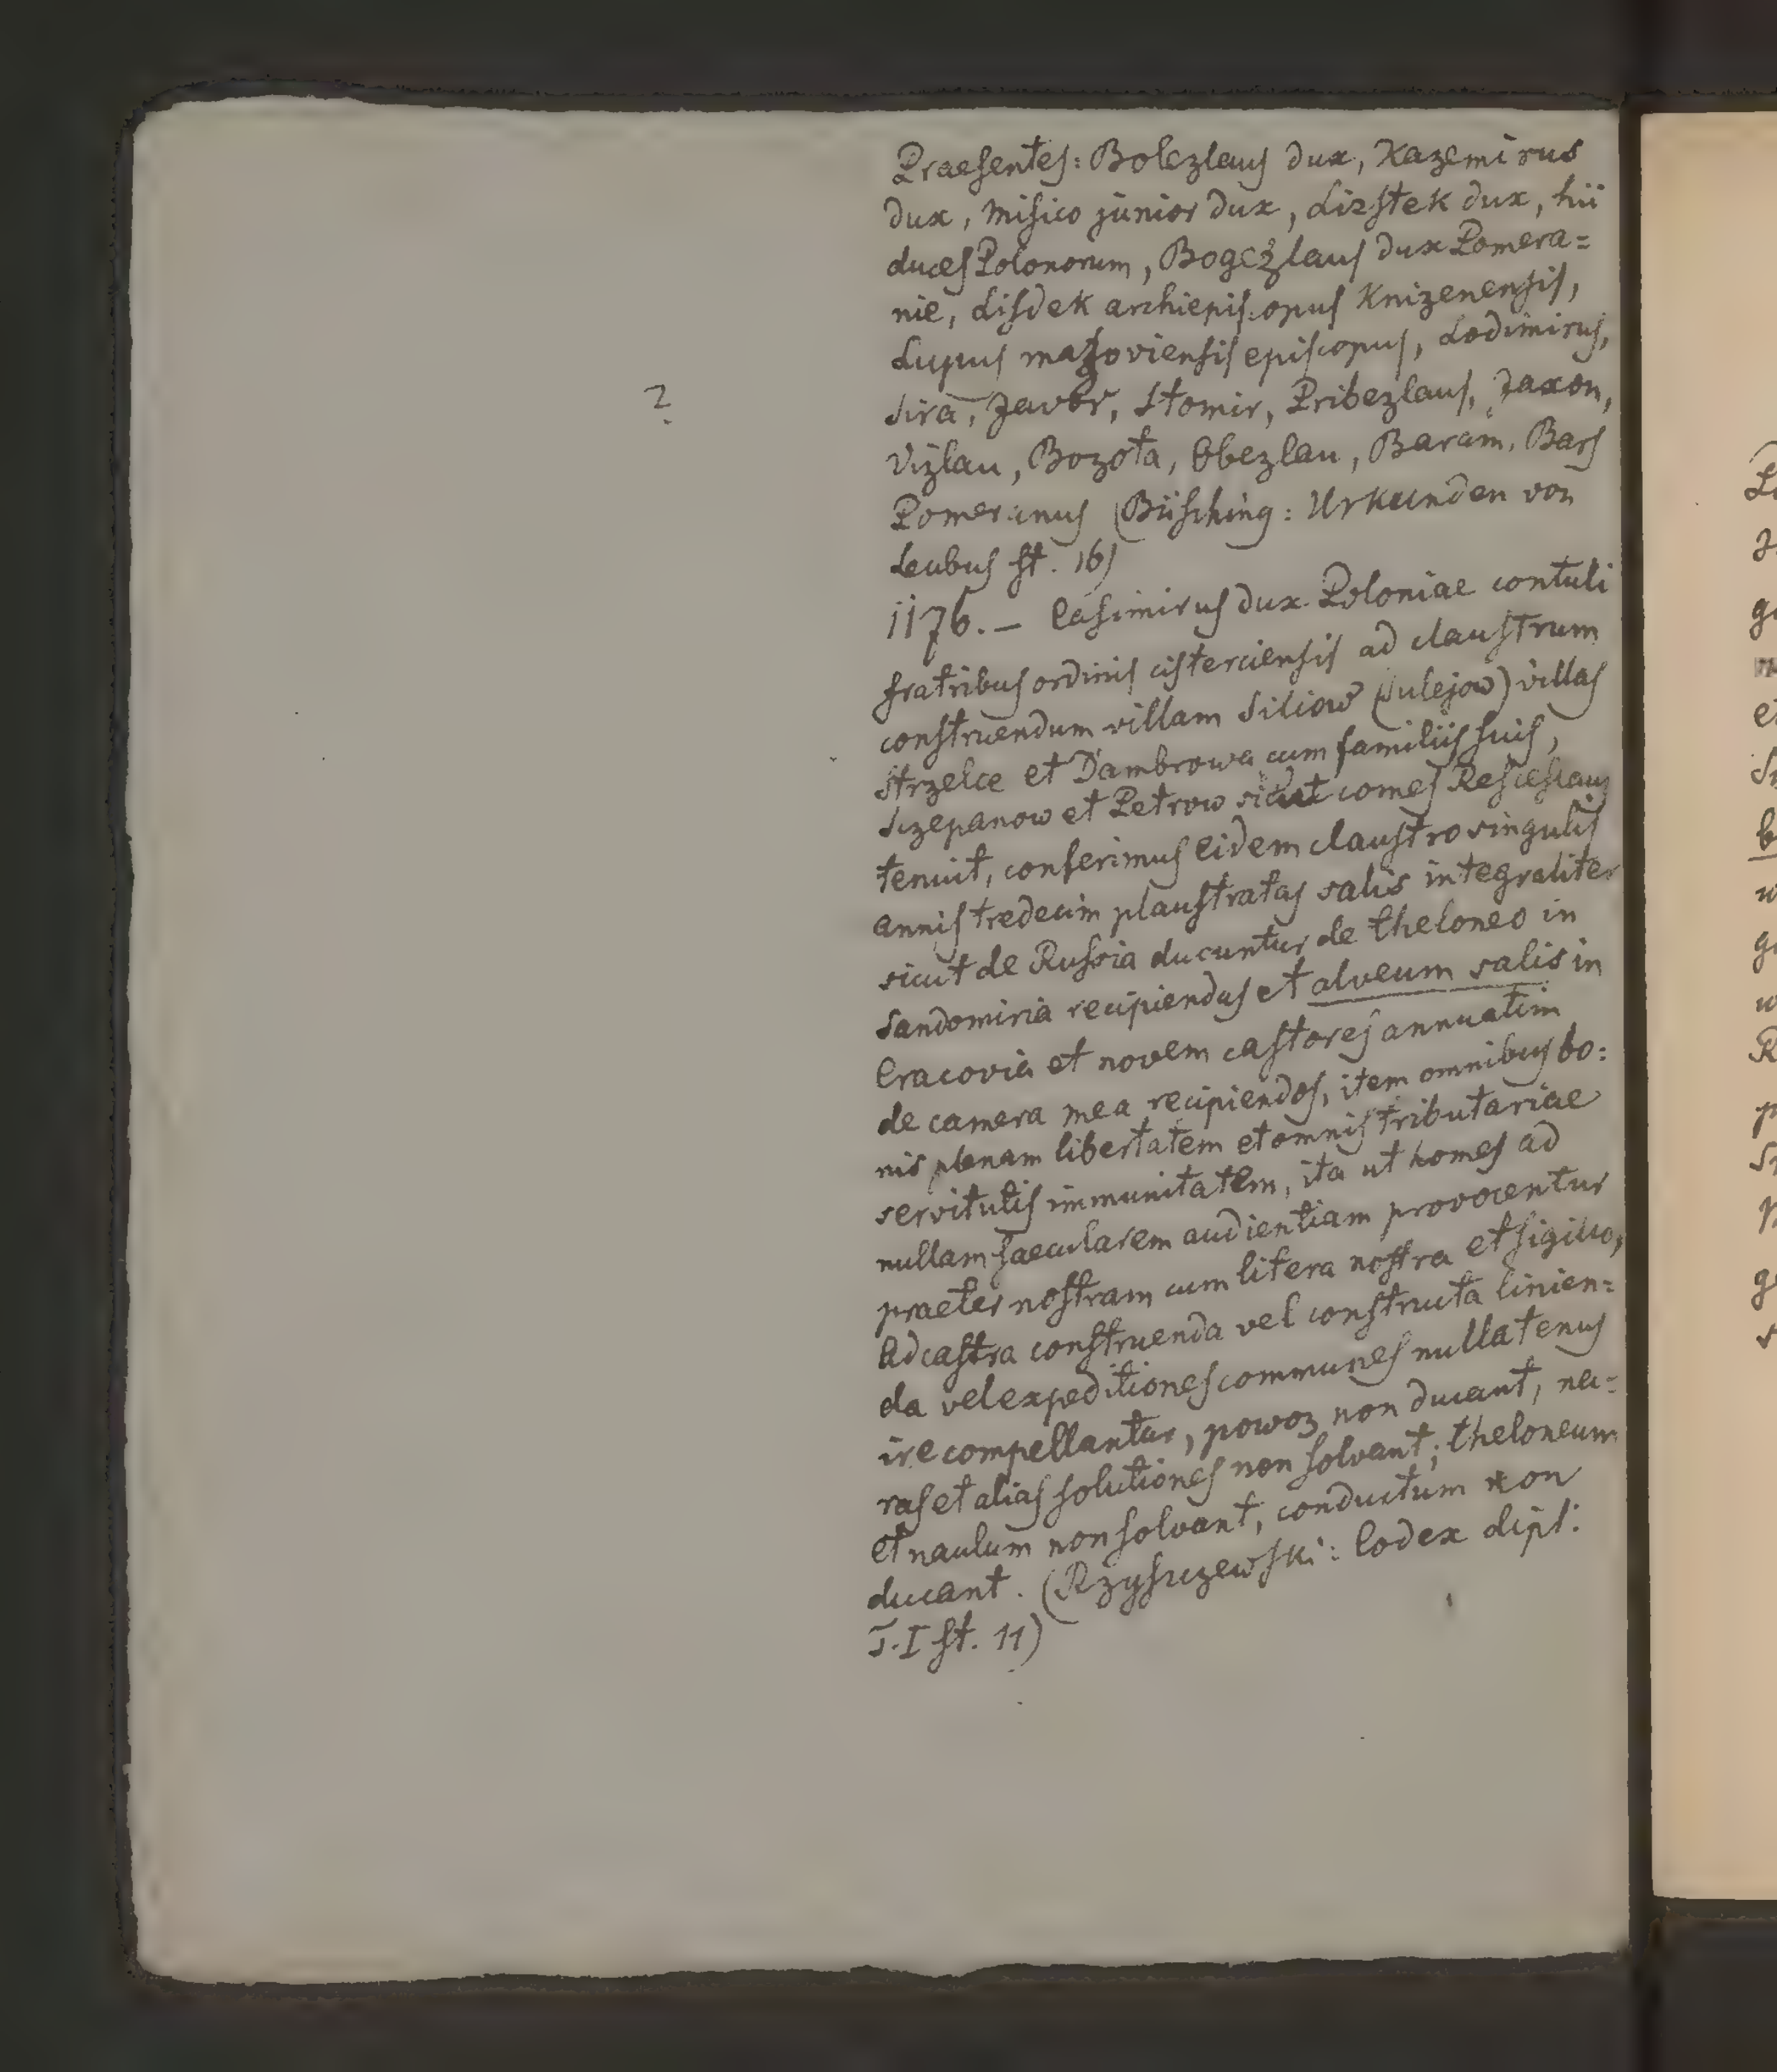 Praesentes: Bolezlaus dux, Kazemirus
dux, Misico junior dux, Listek dux, hii
duces Polonorum, Bogezlaus dux Pomera=
nie, Lisdek archiepiscopus Knizenensis,
Lupus mazoviensis episcopus, Lodimirus,
Sira, Javor, Stomir, Pribezlaus, Jaxon,
Vizlau, Bozota, Obezlau, Baram, Bars
Pomeranus (Büsching: Urkunden von
Leubus st. 16)
?
1176. — Casimirus dux Poloniae contuli
fratribus ordinis cisterciensis ad claustrum
construendum villam Siliow (Sulejow) villas
Strzelce et Dambrowa cum familiis suis,
Szepanow et Petrow sicut comes
tenuit, conferimus eidem claustro singulis
annis tredecim plaustratas salis integraliter
sicut de Russia ducuntur de theloneo in
Sandomiria recipiendas et alveum salis in
Cracovia et novem castores annuatim
de camera mea recipiendos, item omnibus bo:
nis plenam libertatem et omnis tributariae
servitutis immunitatem, ita ut homes ad
nullam saecularem audientiam provocentur
praeter nostram cum litera nostra et sigillo,
Ad castra construenda vel constructa linien=
da vel expeditiones communes nullatenus
ire compellantur, powoz non ducant, na=
ras et alias solutiones non solvant; theloneum
et naulum non solvant, conductum non
ducant. (Rzyszczewski: Codex dipl:
T. I st. 11)